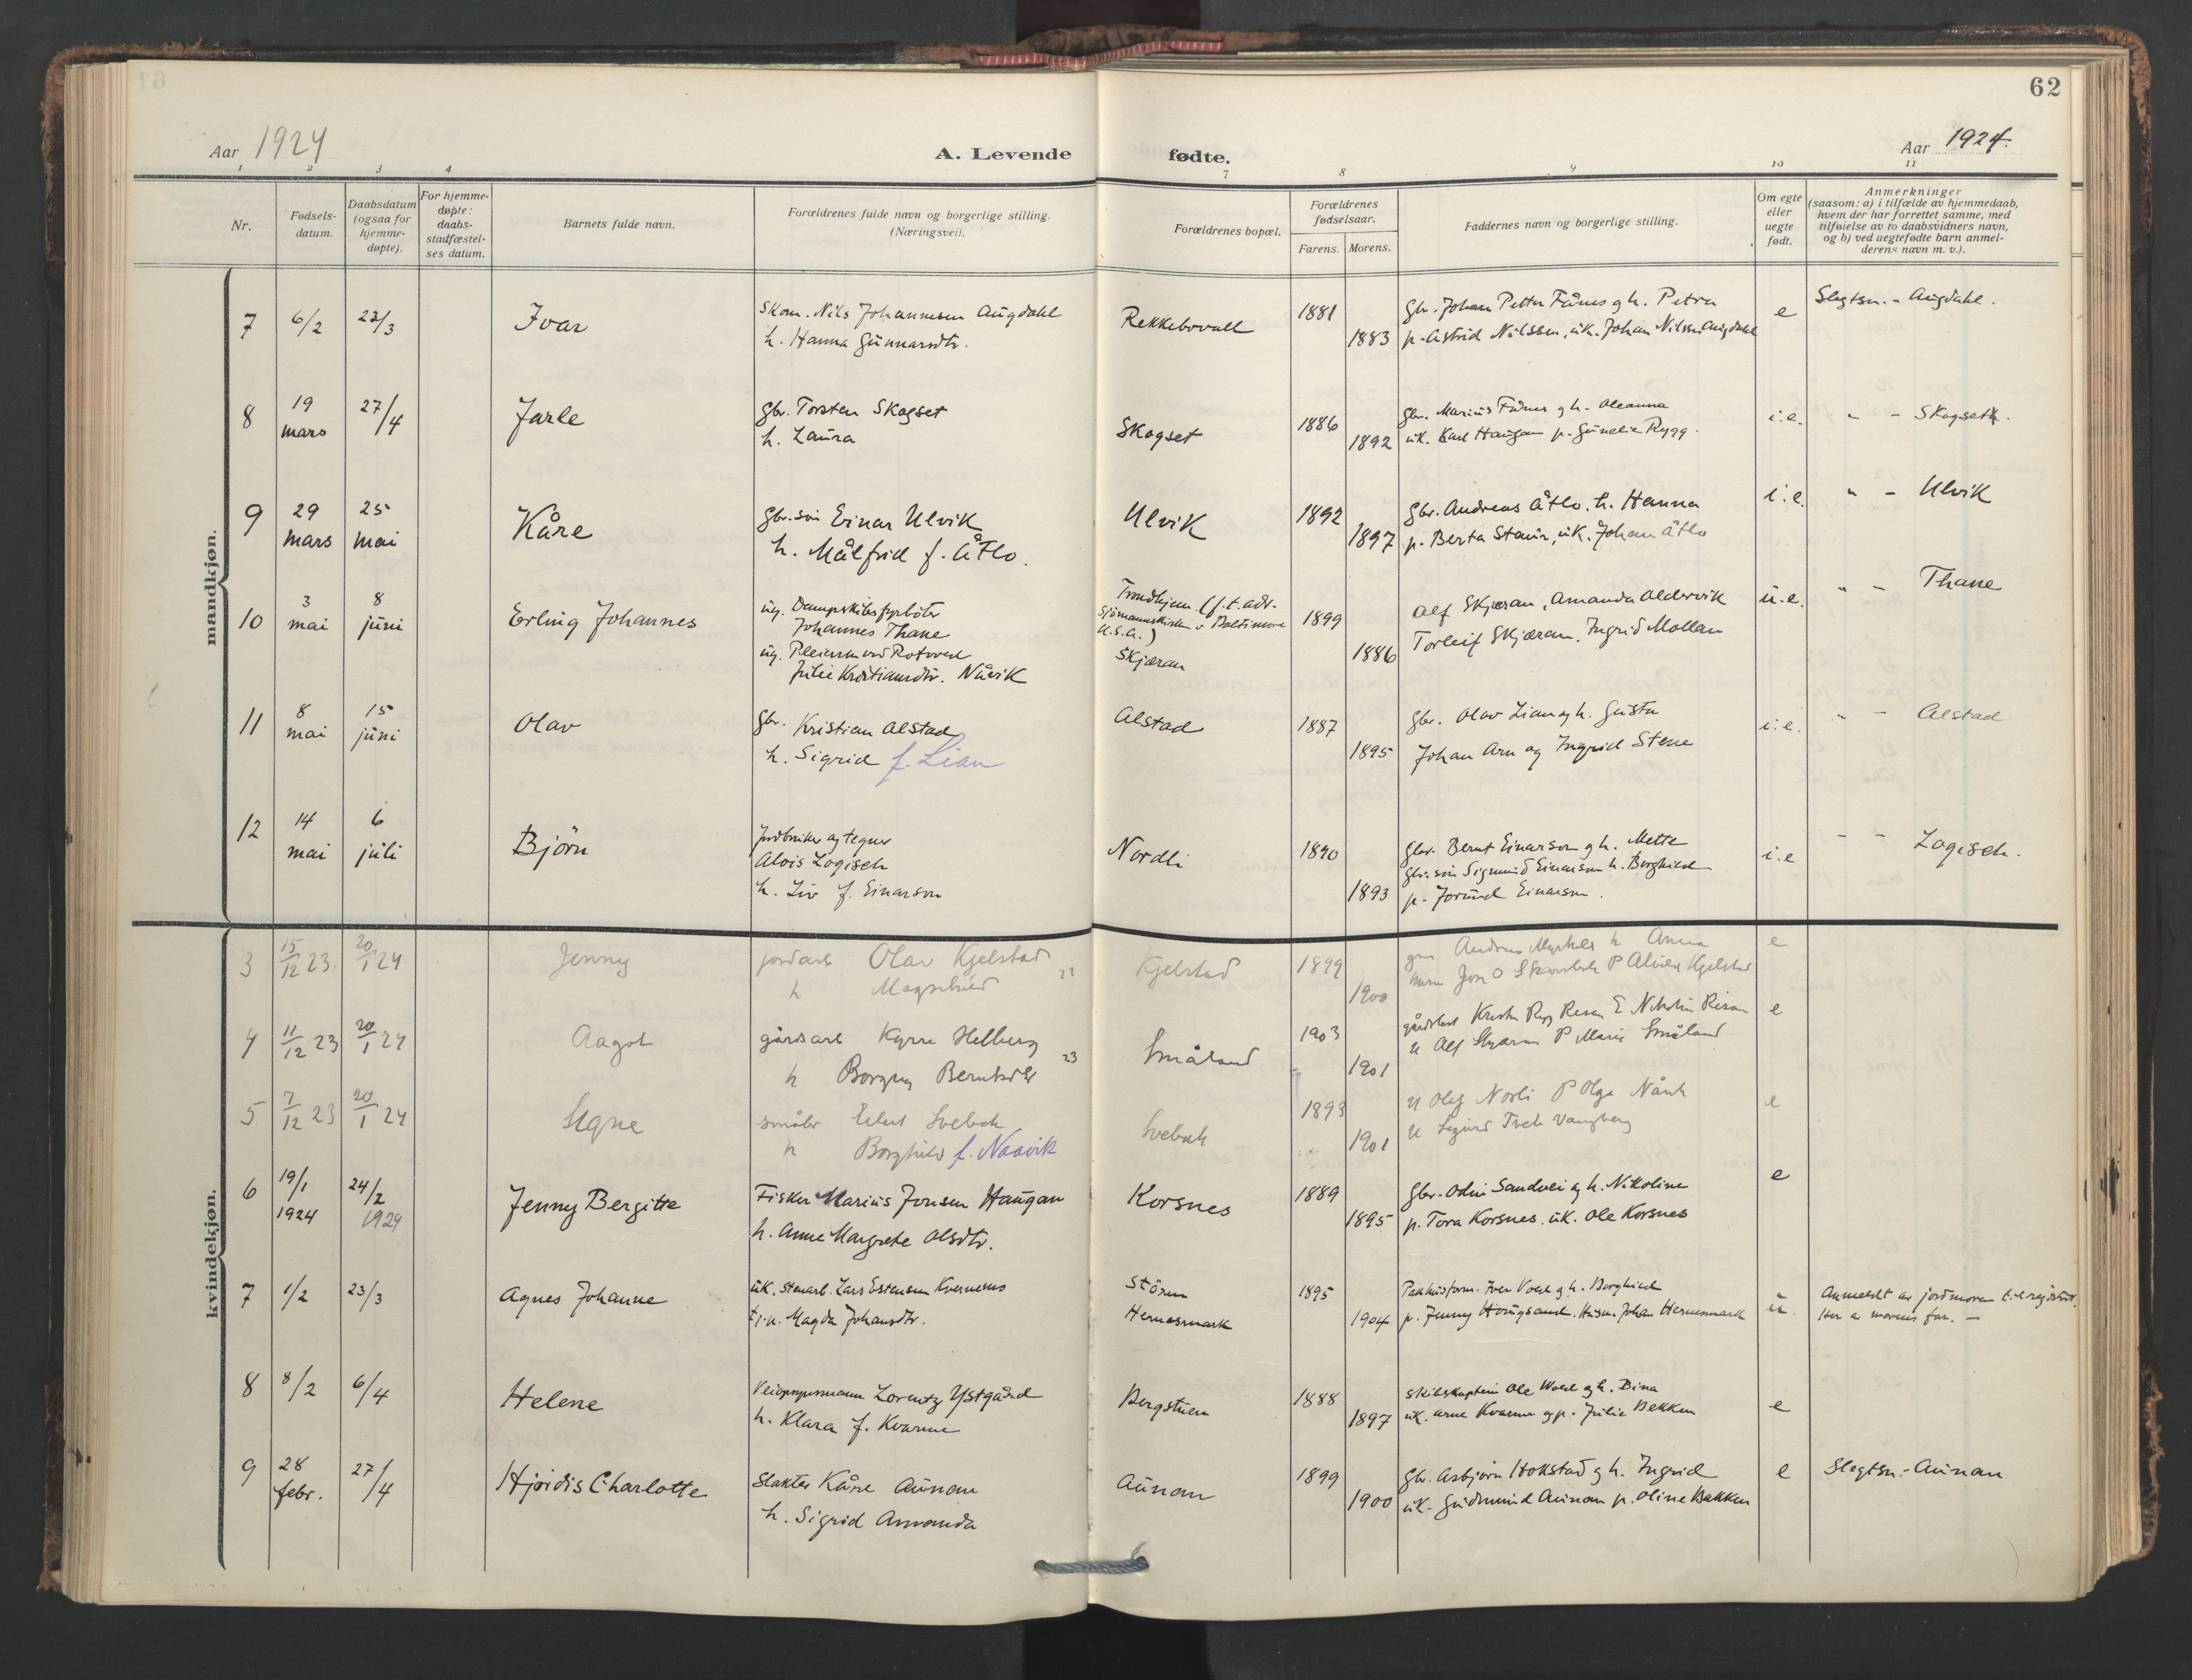 62
Aar 1924
A. Levende fødte.
Aar 1924.
1 2 3 4 7 8 9 10 11
Nr.
Fødsels-
datum.
Daabsdatum
(ogsaa for
hjemme-
døpte).
For hjemme-
døpte:
daabs-
stadfæstel-
ses datum.
Barnets fulde navn.
Forældrenes fulde navn og borgerlige stilling.
(Næringsvei).
Forældrenes bopæl.
Forældrenes
fødselsaar.
Farens. Morens.
Faddernes navn og borgerlige stilling.
Om egte
eller
uegte
født.
Anmerkninger
(saasom: a) i tilfælde av hjemmedaab,
hvem der har forrettet samme, med
tilføielse av to daabsvidners navn,
og b) ved uegtefødte barn anmel-
derens navn m. v.).
mandkjøn.
7 6/2 23/3 Ivar
Skom. Nils Johannesen Augdahl
h. Hanna Gunnarsdtr.
Rekkebovall
1881
1883
gbr. Johan Petter Fånes og h. Petra
p. Astrid Nilssen, uk. Johan Nilssen Augdahl
e
Slegtsn. - Augdahl.
8 19 mars 27/4 Jarle
Gbr. Torsten Skogset
h. Laura
Skogset
1886
1892
gbr. Marius Fånes og h. Oleanna
uk. Karl Haugan p. Gunelie Rygg.
i.e.
" - Skogseth.
9 29 mars 25 mai Kåre
Gbr.søn Einar Ulvik
h. Målfrid f. Åtlo.
Ulvik
1892
1897
Gbr. Andreas Åtlo, h. Hanna
p. Berta Staur, uk. Johan Åtlo
i.e.
" - Ulvik
10 3 mai 8 juni Erling Johannes
ug. Dampskibsfyrbøter
Johannes Thane
ug. Pleierske ved Rotvoll
Julie Kristiansdtr. Nåvik
Trondhjem (f.t. adr.
Sjömannskirken v Baltimore
U.S.A.)
Skjæran
1899
1886
Alf Skjæran, Amanda Aldervik
Torleif Skjæran, Ingrid Mollan
u.e.
" - Thane
11 8 mai 15 juni Olav
Gbr. Kristian Alstad
h. Sigrid f. Lian
Alstad
1887
1895
Gbr. Olav Lian og h. Gusta
Johan Arn og Ingrid Stene
i.e.
" - Alstad
12 14 mai 6 juli Björn
Jordbruker og tegner
Alois Logisch
h. Liv f. Einarson
Nordli
1890
1893
Gbr. Bernt Einarson og h. Mette
Gbr.søn Sigmund Einarson h. Borghild
p. Jorund Einarson.
i.e
" - Logisch.
kvindekjøn.
3 15/12 23. 20/1 24 Jenny
jordarb Olav Kjelstad
h Magnhild 22
Kjelstad
1899
1900
Andreas h Anna
Jon O P Kjelstad
e
4 11/12 23 20/1 24 Aagot
gårdsarb Kyrre Helberg
h Borgny 23
Småland
1903
1901
U Alf Skjæran P Marie Småland
e
5 7/12 23 20/1 24 Signe
småbr
h Borghild f. Naavik
1893
1901
U Olaf Norli P Olga Nåvik
U Sigurd
e
6 19/1 1924 24/2 1924 Jenny Bergitte
Fisker Marius Jonsen Haugan
h. Anne Margrete Olsdtr.
Korsnes
1889
1895
Gbr. Odin Sandvei og h. Nikoline
p. Tora Korsnes, uk. Ole Korsnes
e
7 1/2 23/3 Agnes Johanne
uk. stenarb. Lars Estensen Kvernmo
tj.p. Magda Johansdtr.
Stören
Hernesmark
1895
1904
Iver Vold og h. Borghild
p. Jenny Haugsand, Husm. Johan Hernesmark
u.
Anmeldt av jordmoren til registret.
Her a morens far. -
8 8/2 6/4 Helene
Veiopsynsmann Lorentz Ystgård
h. Klara f. Kvarme
Bergstuen
1888
1897
Skibskaptein Ole Wold og h. Dina
uk. Arne Kvarme og p. Julie Bekken
e
9 28 febr. 27/4 Hjördis Charlotte
Slakter Kåre Aunan
h. Sigrid Amanda
Aunan
1899
1900
Gbr. Asbjörn Hokstad og h. Ingrid
uk. Gudmund Aunan p. Oline Bakken
e
Slegtsn. - Aunan